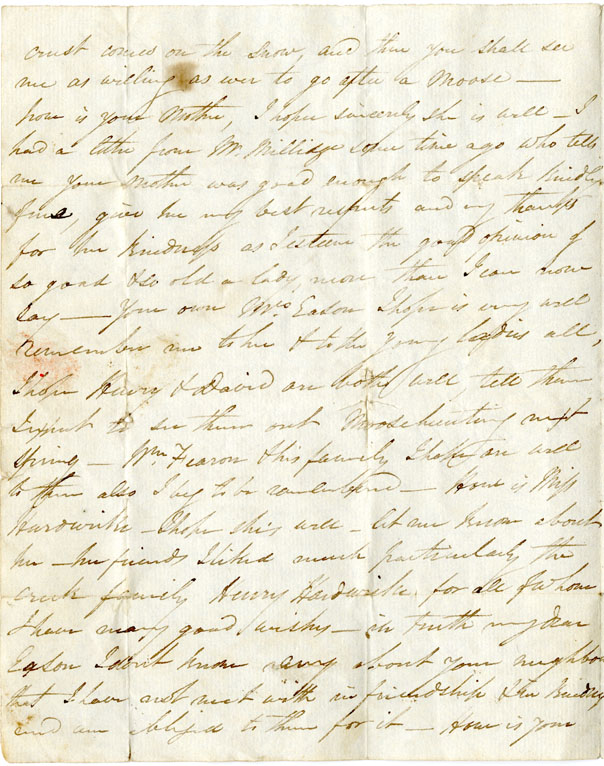 crust comes on the snow, and then you shall see
me as willing as ever to go after a Moose —
how is your Mother, I hope sincerely she is well — I
had a letter from Mr. Millidge some time ago who tells
me your Mother was good enough to speak kindly
give her my best respects and my thanks
for her kindness as I esteem the good opinion of
so good & so old a lady, more than I can now
say — Your own Mrs Eason I hope is very well
remember me to her & to the young ladies all,
I hope Henry & David are both well, tell them
I expect to see them out Moosehunting next
Spring — Wm Fearon & his family I hope are well
to them also I beg to be remembered — How is Miss
Hardwicke — I hope she is well — let me know about
her — her friends I liked much particularly the
creek family Henry Hardwicke for all of whom
I have many good wishes — in truth my dear
Eason I don't know any about your neighbor
that I have not met with in friendship & kindness
and am obliged to them for it — How is your